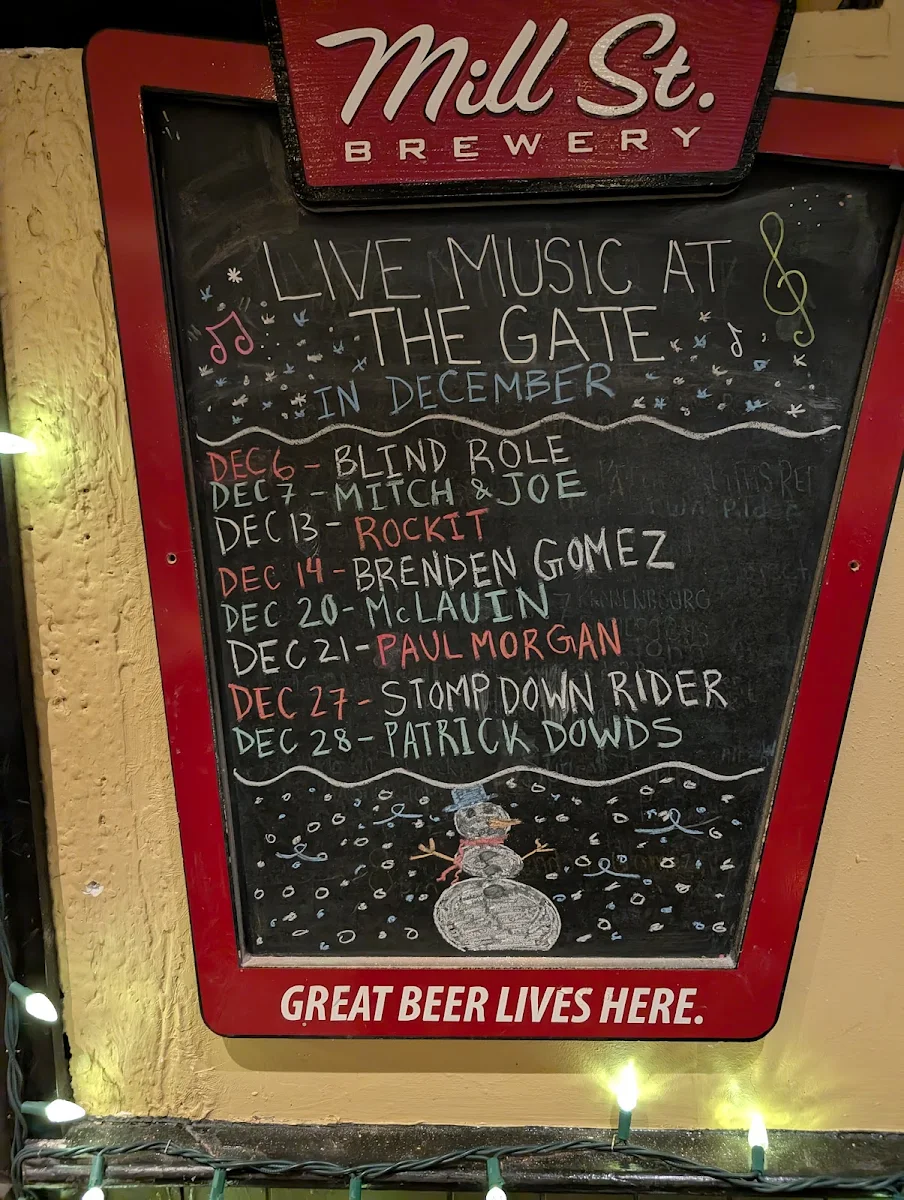 Mill St.
BREWERY
LIVE MUSIC AT
THE GATE
IN DECEMBER
DEC 6 - BLIND ROLE
DEC 7 - MITCH & JOE
DEC 13 - ROCKIT
DEC 14 - BRENDEN GOMEZ
DEC 20 - McLAUIN
DEC 21 - PAUL MORGAN
DEC 27 - STOMP DOWN RIDER
DEC 28 - PATRICK DOWDS
GREAT BEER LIVES HERE.